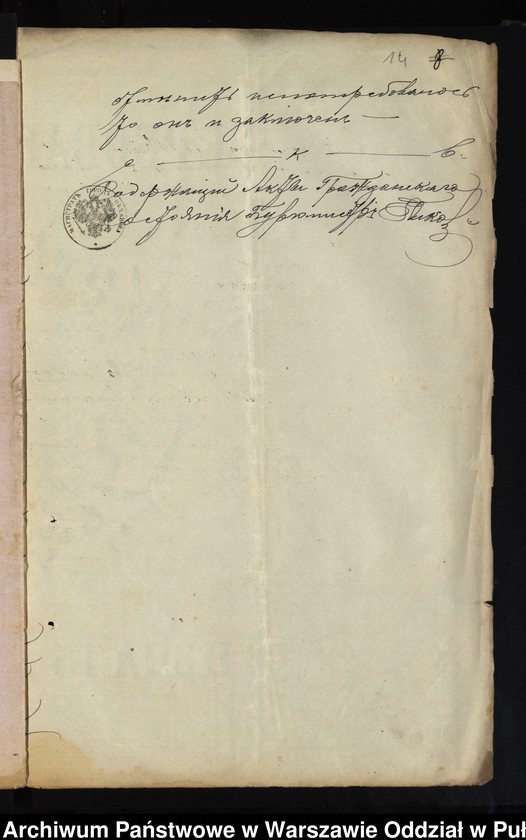 14 8
непотребовалось
то онъ и заключенъ —
Содержащій Акты Гражданскаго
Состоянія Бурмистръ
Archiwum Państwowe w Warszawie Oddział w Puł